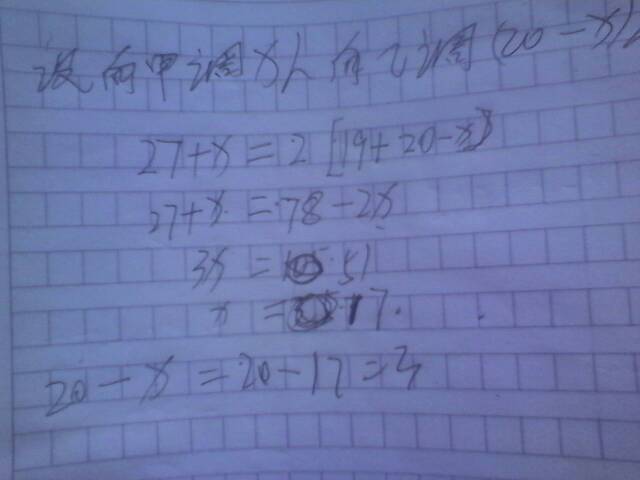 设向甲调x人向乙调(20-x)人
27+x=2[19+20-x]
27+x=78-2x
3x=51
x=17.
20-x=20-17=3